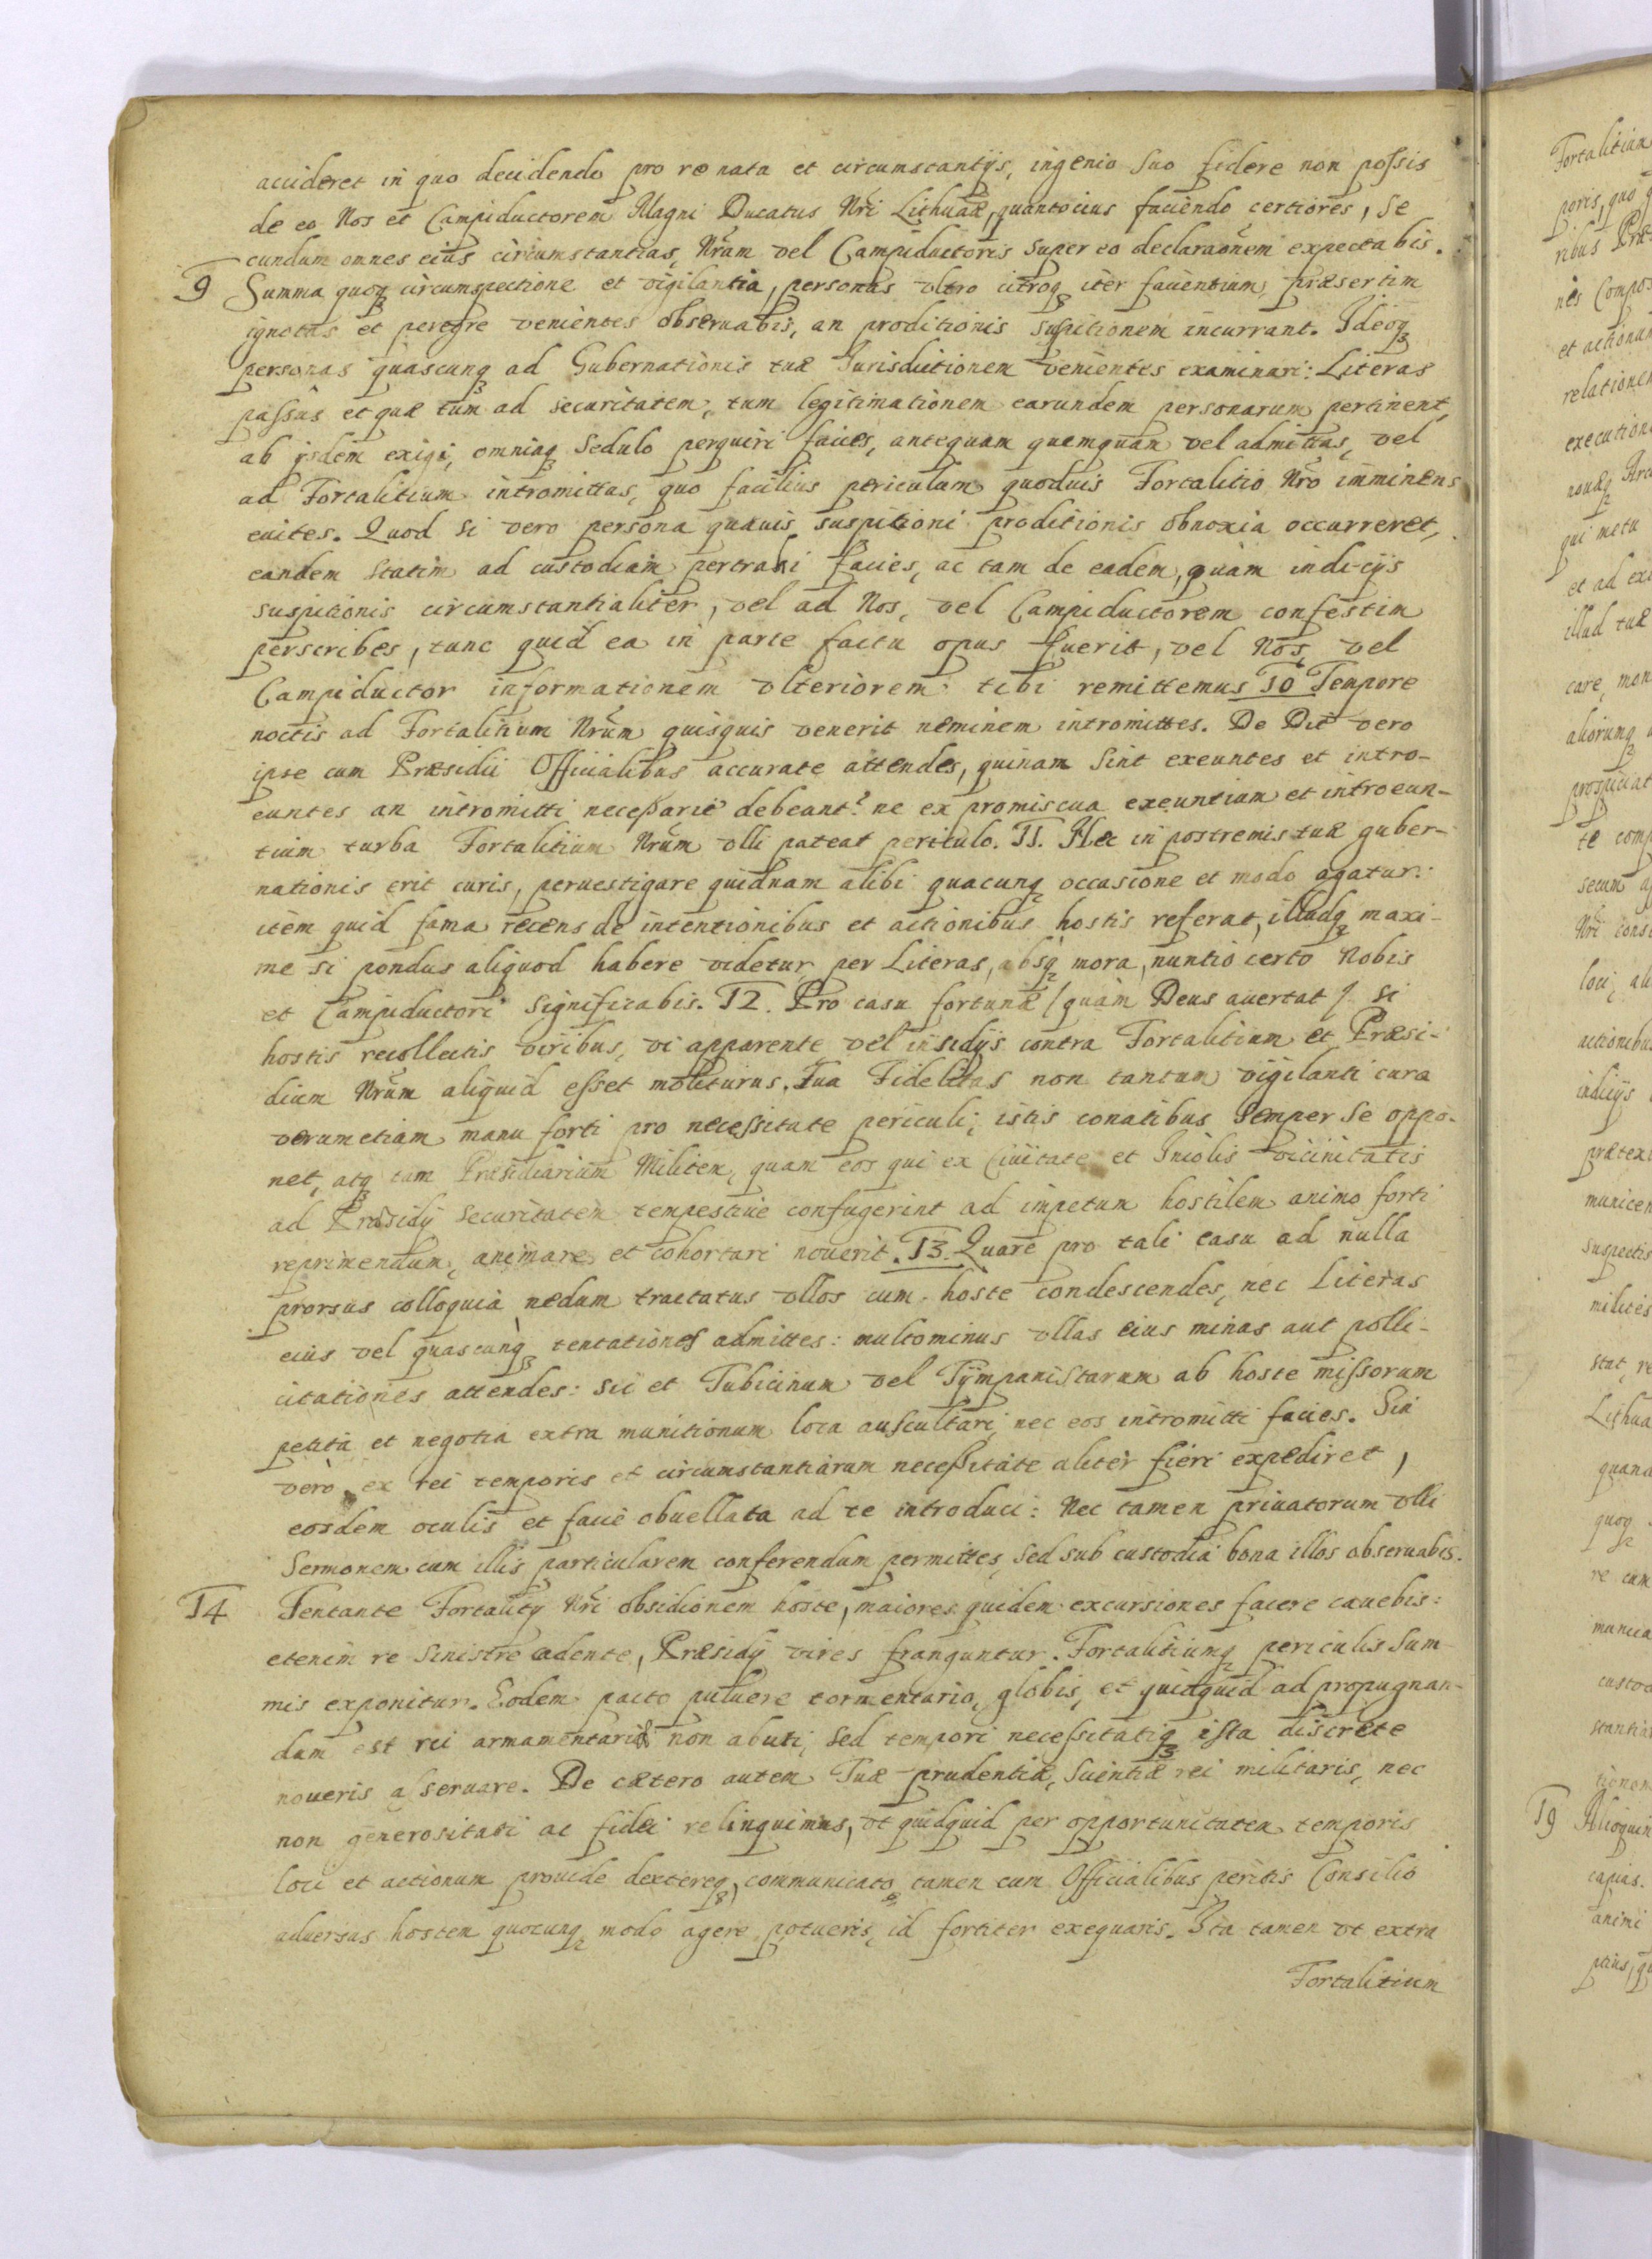 accideret in quo decidendo pro re nata et circumstantijs, ingenio suo fidere non possis
de eo Nos et Campiductorem Magni Ducatus Nri Lithuae, quantocius faciendo certiores, se
cundum omnes eius circumstantias, Nram vel Campiductoris super eo declaraonem expectabis.
9 Summa quoq circumspectione et vigilantia, personas vltro citroq iter facientium, praesertim
ignotas et peregre venientes obseruabis, an proditionis suspitionem incurrant. Ideoq
personas quascunq ad Gubernationis tuae Jurisdictionem venientes examinari: Literas
passus et quae tum ad securitatem, tum legitimationem earundem personarum pertinent,
ab ijsdem exigi, omniaq sedulo perquiri facies, antequam quemquam vel admittas, vel
ad Fortalitium intromittas, quo facilius periculum quoduis Fortalitio Nro imminens
euites. Quod si vero persona quaeuis suspitioni proditionis obnoxia occurreret,
eandem statim ad custodiam pertrahi facies, ac tam de eadem, quam indicijs
suspitionis circumstantialiter, vel ad Nos, vel Campiductorem confestim
perscribes, tunc quid ea in parte factu opus fuerit, vel Nos, vel
Campiductor informationem vlteriorem tibi remittemus 10 Tempore
noctis ad Fortalitium Nrum quisquis venerit neminem intromittes. De Die vero
ipse cum Praesidii Officialibus accurate attendes, quinam sint exeuntes et intro-
euntes an intromitti necessarie debeant? ne ex promiscua exeuntium et introeun-
tium turba Fortalitium Nrum vlli pateat periculo. 11. Haec in postremis tuae guber-
nationis erit curis, peruestigare quidnam alibi quacunq occasione et modo agatur:
item quid fama recens de intentionibus et actionibus hostis referat, illudq maxi-
me si pondus aliquod habere videtur per Literas, absq mora, nuntio certo Nobis
et Campiductori significabis. 12. Pro casu fortunae / quam Deus auertat / si
hostis recollectis viribus, vi apparente vel insidijs contra Fortalitium et Praesi-
dium Nrum aliquid esset moliturus. Tua Fidelitas non tantum vigilanti cura
verumetiam manu forti pro necessitate periculi, istis conatibus semper se oppo-
net, atq tam Praesidiarium Militem, quam eos qui ex Ciuitate et Incolis vicinitatis
ad Praesidij securitatem tempestiue confugerint ad impetum hostilem animo forti
reprimendum, animare et cohortari nouerit. 13. Quare pro tali casu ad nulla
prorsus colloquia nedum tractatus vllos cum hoste condescendes, nec Literas
eius vel quascunq tentationes admittes: multominus vllas eius minas aut polli-
citationes attendes: sic et Tubicinum vel Tympanistarum ab hoste missorum
petita et negotia extra munitionum loca auscultari, nec eos intromitti facies. Sin
vero ex rei temporis et circumstantiarum necessitate aliter fieri expediret,
eosdem oculis et facie obuellata ad te introduci: Nec tamen priuatorum vlli
Sermonem cum illis particularem conferendum permittes, sed sub custodia bona illos obseruabis.
14 Tentante Fortalitij Nri obsidionem hoste, maiores quidem excursiones facere cauebis:
etenim re sinistre cadente, Praesidij vires franguntur. Fortalitiumq periculis sum-
mis exponitur. Eodem pacto puluere tormentario, globis, et quidquid ad propugnan-
dum est rei armamentariae non abuti, sed tempori necessitatiq ista discrete
noueris asseruare. De caetero autem Tuae prudentiae, scientiae rei militaris, nec
non generositati ac fidei relinquimus, vt quidquid per opportunitatem temporis
loci et actionum prouide dextereq, communicato tamen cum Officialibus peritis Consilio
aduersus hostem quocunq modo agere potueris, id fortiter exequaris. Ita tamen vt extra
Fortalitium